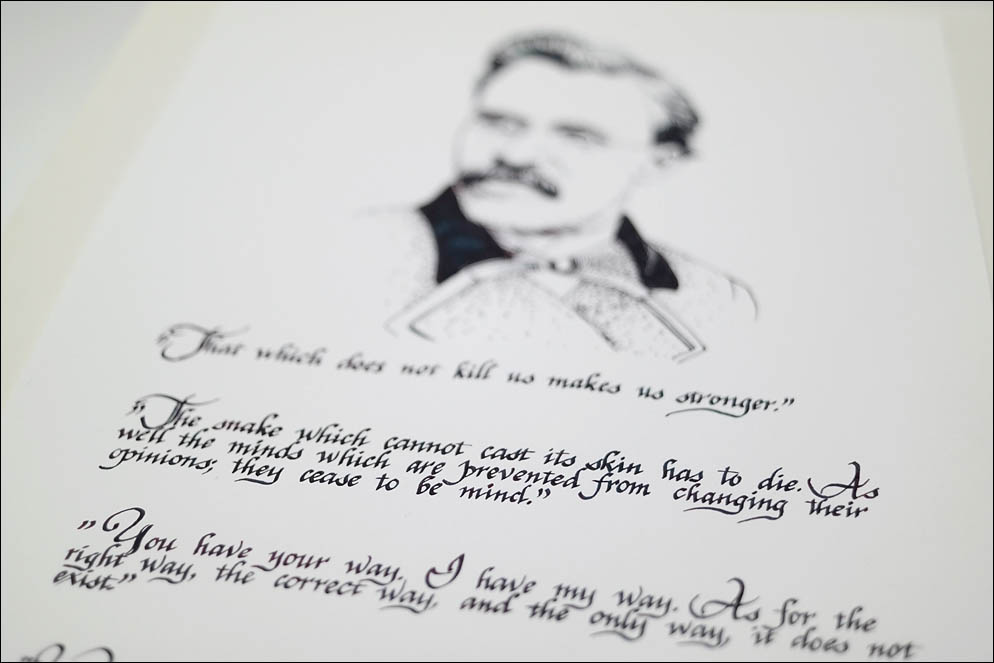 "That which does not kill us makes us stronger."
"The snake which cannot cast its skin has to die. As
well the minds which are prevented from changing their
opinions; they cease to be mind."
"You have your way. I have my way. As for the
right way, the correct way, and the only way, it does not
exist."